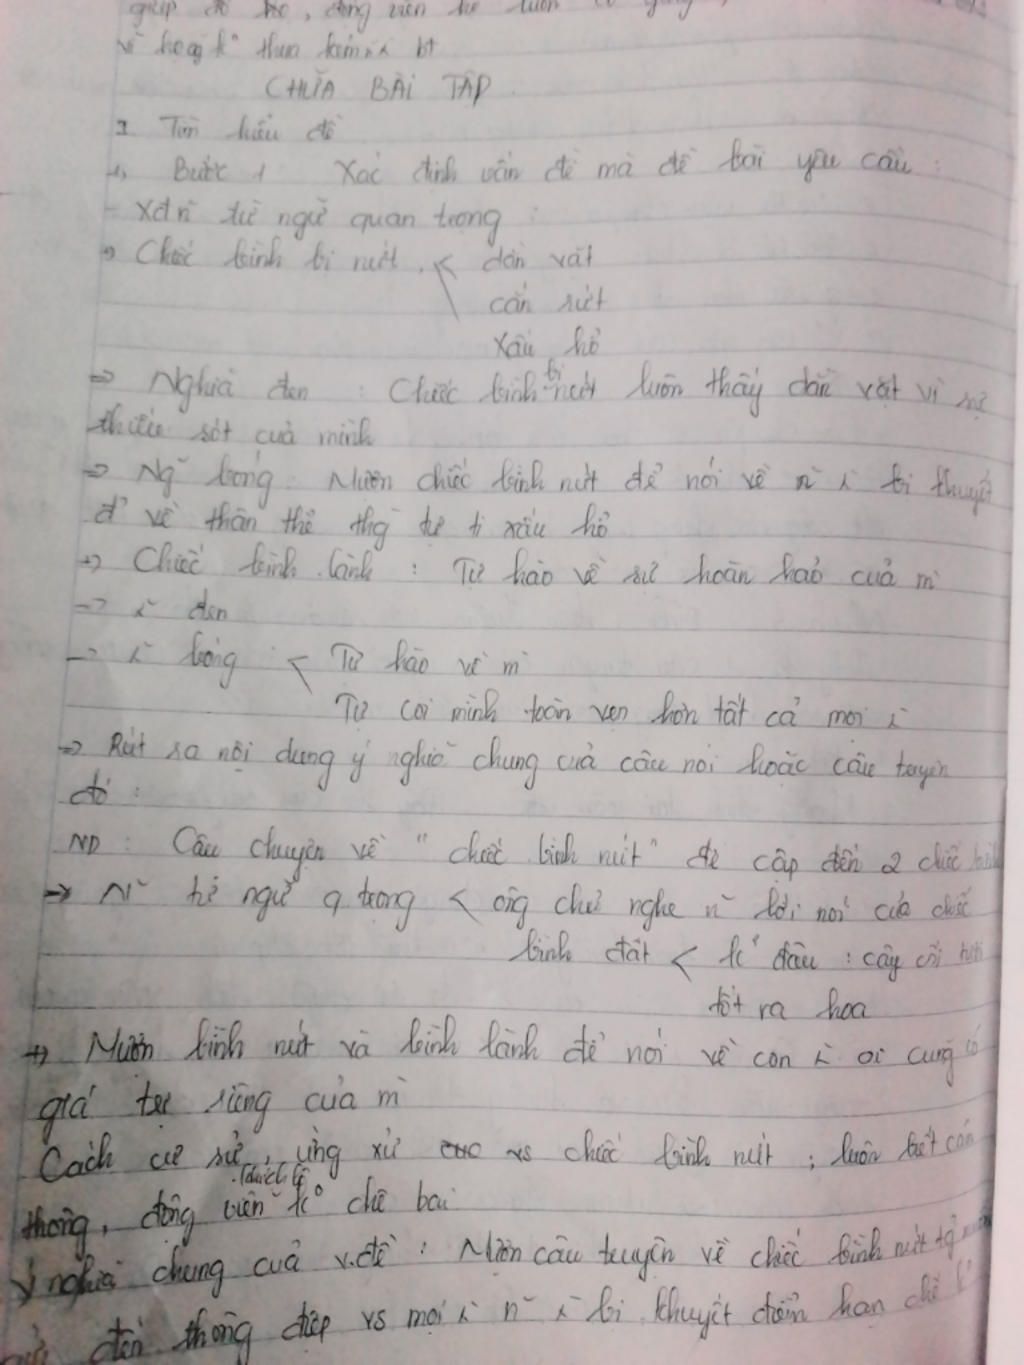 giúp đỡ họ, động viên họ luôn cố gắng
vì họ k° thua kém
CHỮA BÀI TẬP
I Tìm hiểu đề
1, Bước 1 Xác định vấn đề mà đề bài yêu cầu :
- Xđ n~ từ ngữ quan trọng :
-> Chiếc bình bị nứt < dằn vặt
cắn rứt
Xấu hổ
=> Nghĩa đen : Chiếc bình bị nứt luôn thấy dằn vặt vì sự
thiếu sót của mình
=> Ng~ bóng : Mượn chiếc bình nứt để nói về n~ bị khuyết
đ' về thân thể thg tự ti xấu hổ
-> Chiếc bình lành : Tự hào về sự hoàn hảo của m
-> đen
-> bóng : < Tự hào về m
Tự coi mình toàn vẹn hơn tất cả mọi
=> Rút ra nội dung ý nghĩa chung của câu nói hoặc câu truyện
đó :
ND : Câu chuyện về " chiếc bình nứt " đề cập đến 2 chiếc bình
-> N~ ngữ q trọng < ông chủ nghe n~ lời nói của chiếc
bình đất < đầu : cây cối tươi
tốt ra hoa
-> Mượn bình nứt và bình lành để nói về con ai cũng có
giá trị riêng của m
Cách cư sử, ứng xử vs chiếc bình nứt ; luôn biết cảm
thông, động viên khích lệ k° chê bai
Ý nghĩa chung của v.đề : Mượn câu truyện về chiếc bình nứt
đến thông điệp vs mọi n~ bị khuyết điểm hạn chế